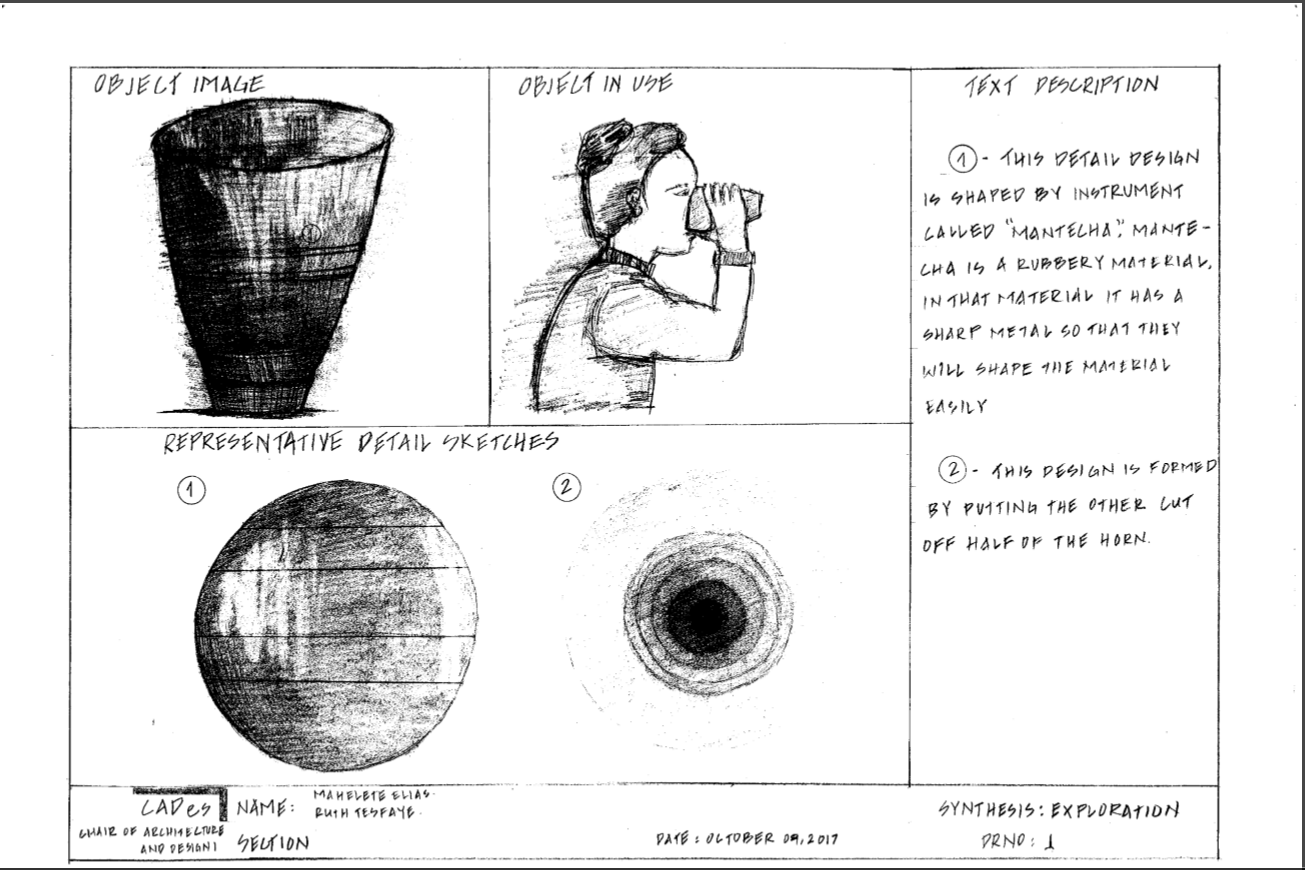 OBJECT IMAGE
1
OBJECT IN USE
TEXT DESCRIPTION
1 - THIS DETAIL DESIGN
IS SHAPED BY INSTRUMENT
CALLED "MANTECHA", MANTE-
CHA IS A RUBBERY MATERIAL,
IN THAT MATERIAL IT HAS A
SHARP METAL SO THAT THEY
WILL SHAPE THE MATERIAL
EASILY
2 - THIS DESIGN IS FORMED
BY PUTTING THE OTHER CUT
OFF HALF OF THE HORN.
REPRESENTATIVE DETAIL SKETCHES
1
2
CADes
CHAIR OF ARCHITECTURE
AND DESIGN I
NAME:
MAHELETE ELIAS.
RUTH TESFAYE.
SECTION
DATE: OCTOBER 09, 2017
SYNTHESIS: EXPLORATION
DRNO: 1